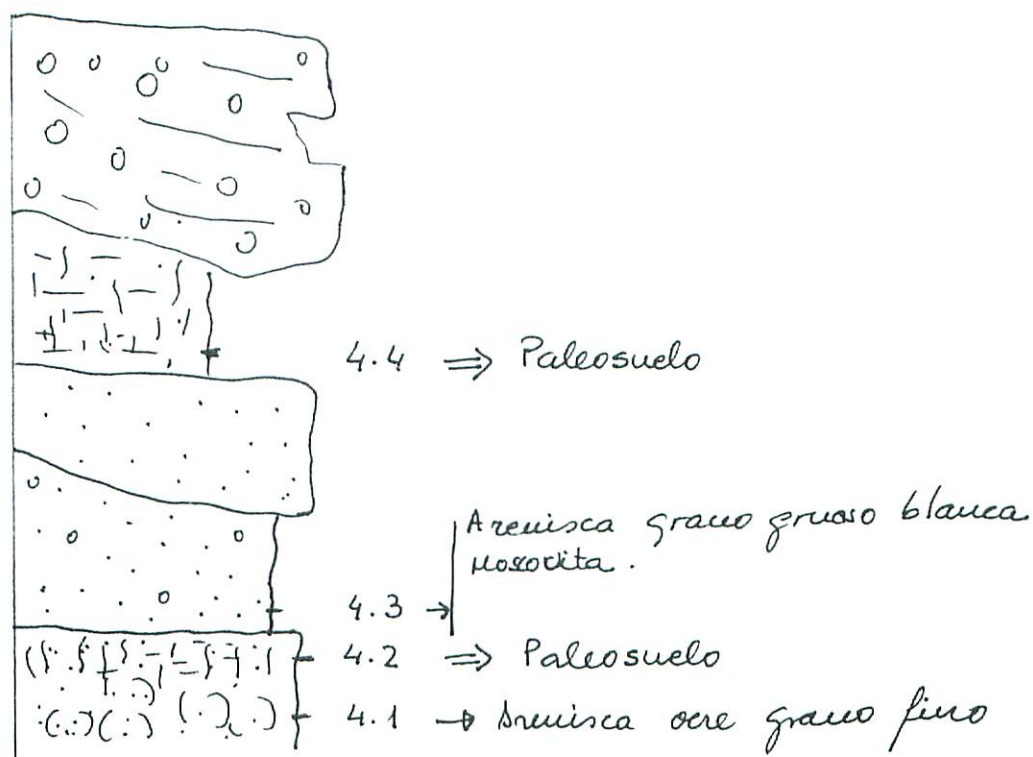 4.4 ⇒ Paleosuelo
Arenisca grano grueso blanca
moscovita.
4.3 →
4.2 ⇒ Paleosuelo
4.1 → Arenisca ocre grano fino